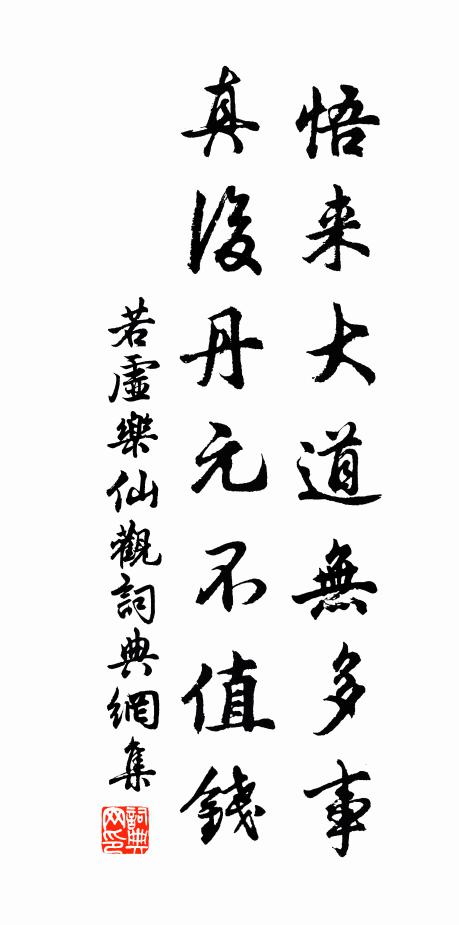 悟来大道無多事
真後丹元不值錢
若虛樂仙觀詞典網集
詞典网印